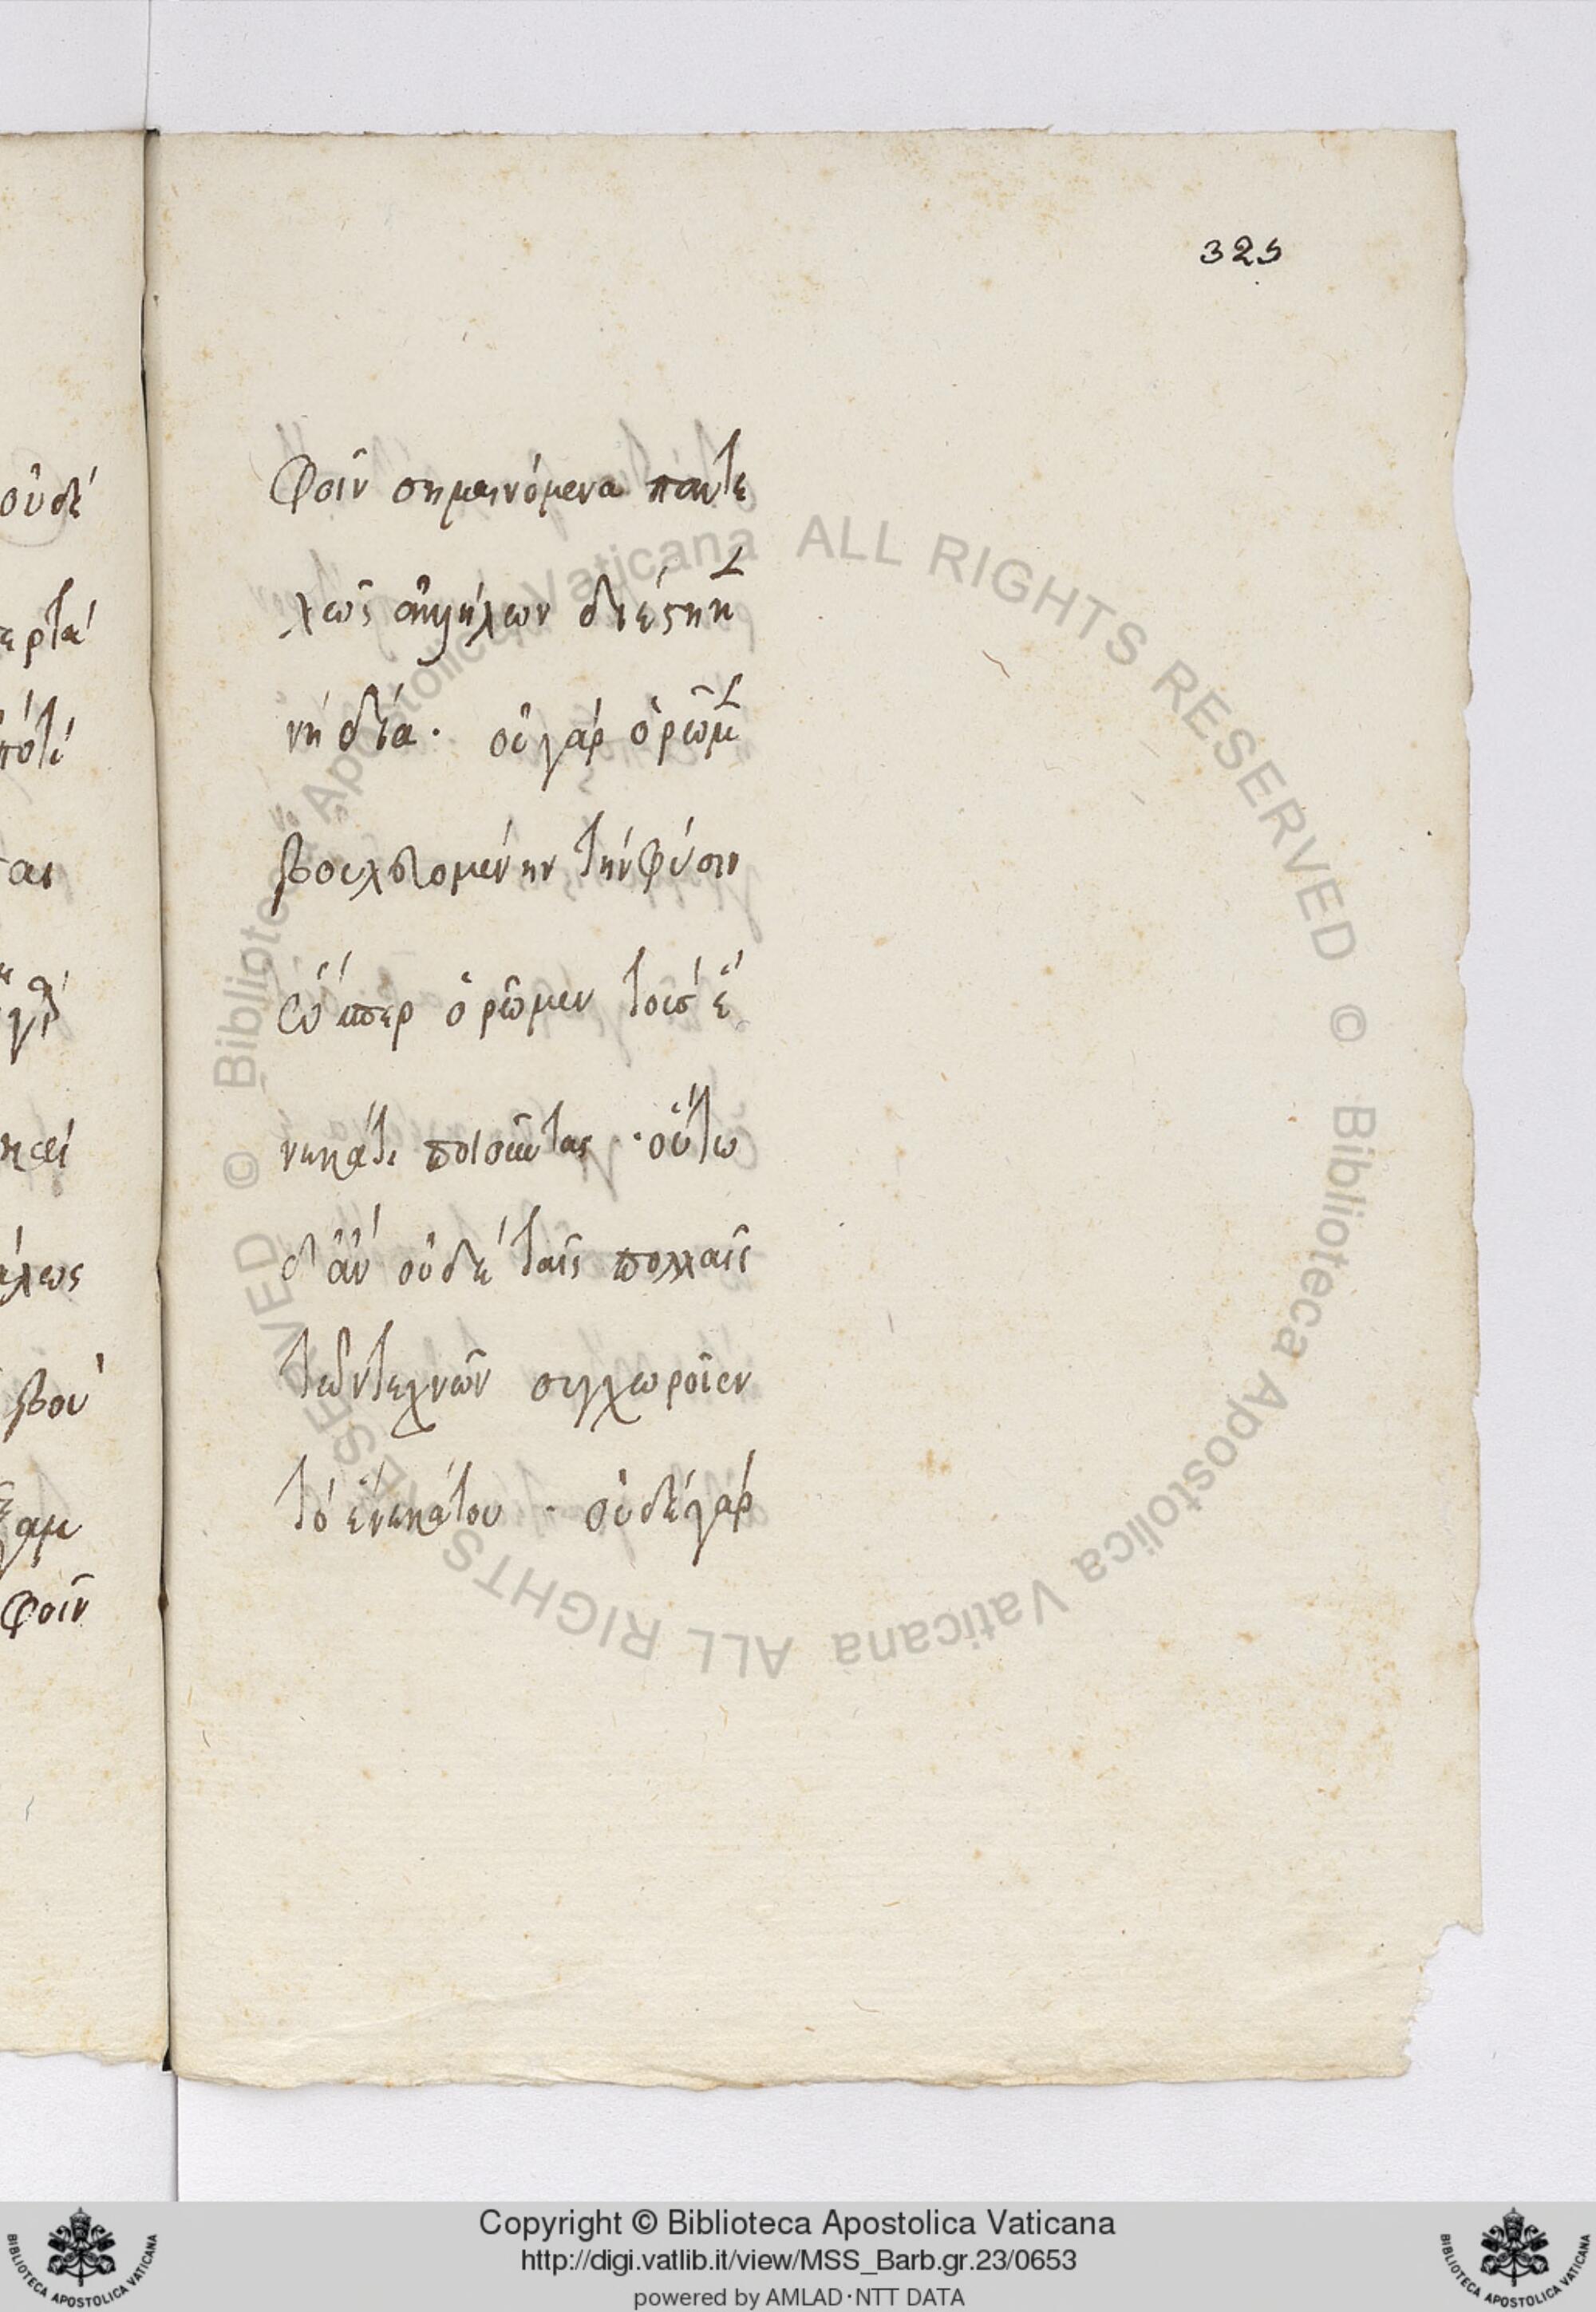 325
φοῖν σημαινόμενα παντε
λῶς ἀλλήλων διέστηκ
νὴ δία. οὐ γὰρ ὁρῶμ
βουλευομένην τὴν φύσιν
οὕπερ ὁρῶμεν τοὺς ἕ
νεκά τι ποιοῦντας. οὕτω
δ' ἂν οὐδὲ ταῖς πολλαῖς
τῶν τεχνῶν συγχωροῖεν
τὸ ἕνεκά του. οὐδὲ γὰρ
οὐδὲ
ερτα
ποτὲ
και
λεως
βου
γαμ
φοῖν
© Biblioteca Apostolica Vaticana ALL RIGHTS RESERVED © Biblioteca Apostolica Vaticana ALL RIGHTS RESERVED
Copyright © Biblioteca Apostolica Vaticana
http://digi.vatlib.it/view/MSS_Barb.gr.23/0653
powered by AMLAD·NTT DATA
BIBLIOTECA APOSTOLICA VATICANA
BIBLIOTECA APOSTOLICA VATICANA